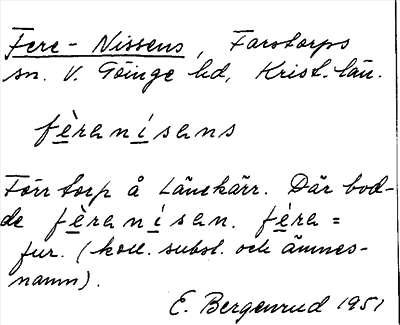 Fere-Nissens, Farstorps
sn. V. Göinge hd, Krist. län.
fèrenísens
Förr torp å Länekärr. Där bod-
de fèrenísen. fère =
fur. (koll. subst. och ämnes-
namn).
E. Bergenrud 1951